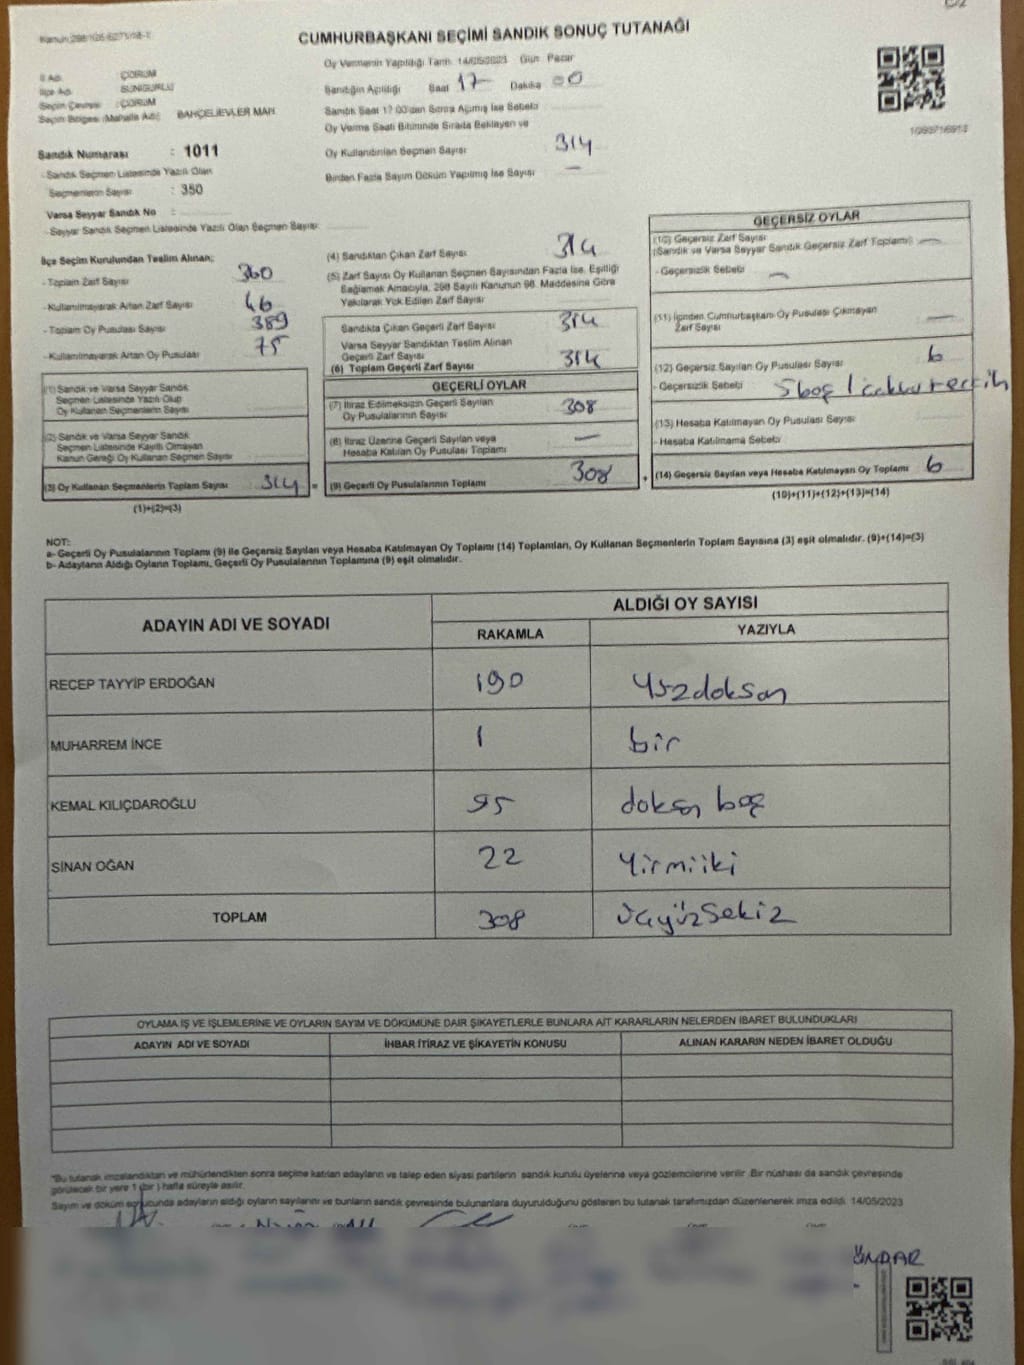 C/2
CUMHURBAŞKANI SEÇİMİ SANDIK SONUÇ TUTANAĞI
İl Adı : ÇORUM
İlçe Adı : SUNGURLU
Seçim Çevresi : ÇORUM
Seçim Bölgesi (Mahalle Adı) : BAHÇELİEVLER MAH.
Sandık Numarası : 1011
-Sandık Seçmen Listesinde Yazılı Olan
Seçmenlerin Sayısı : 350
Varsa Seyyar Sandık No :
-Seyyar Sandık Seçmen Listesinde Yazılı Olan Seçmen Sayısı
Oy Vermenin Yapıldığı Tarih 14/05/2023 Gün Pazar
Sandığın Açıldığı Saat 17 Dakika 00
Sandık Saat 17:00'den Sonra Açılmış İse Sebebi
Oy Verme Saati Bitiminde Sırada Bekleyen ve
Oy Kullandırılan Seçmen Sayısı 314
Birden Fazla Sayım Döküm Yapılmış İse Sayısı —
İlçe Seçim Kurulundan Teslim Alınan;
- Toplam Zarf Sayısı 360
- Kullanılmayarak Artan Zarf Sayısı 46
- Toplam Oy Pusulası Sayısı 389
- Kullanılmayarak Artan Oy Pusulası 75
(1) Sandık ve Varsa Seyyar Sandık
Seçmen Listesinde Yazılı Olup
Oy Kullanan Seçmenlerin Sayısı
(2) Sandık ve Varsa Seyyar Sandık
Seçmen Listesinde Kayıtlı Olmayan
Kanun Gereği Oy Kullanan Seçmen Sayısı
(3) Oy Kullanan Seçmenlerin Toplam Sayısı 314 =
(1)+(2)=(3)
(4) Sandıktan Çıkan Zarf Sayısı 314
(5) Zarf Sayısı Oy Kullanan Seçmen Sayısından Fazla İse, Eşitliği
Sağlamak Amacıyla, 298 Sayılı Kanunun 98. Maddesine Göre
Yakılarak Yok Edilen Zarf Sayısı
Sandıkta Çıkan Geçerli Zarf Sayısı 314
Varsa Seyyar Sandıktan Teslim Alınan
Geçerli Zarf Sayısı
(6) Toplam Geçerli Zarf Sayısı 314
GEÇERLİ OYLAR
(7) İtiraz Edilmeksizin Geçerli Sayılan
Oy Pusulalarının Sayısı 308
(8) İtiraz Üzerine Geçerli Sayılan veya
Hesaba Katılan Oy Pusulası Toplamı —
(9) Geçerli Oy Pusulalarının Toplamı 308 +
GEÇERSİZ OYLAR
(10) Geçersiz Zarf Sayısı
(Sandık ve Varsa Seyyar Sandık Geçersiz Zarf Toplamı) —
- Geçersizlik Sebebi —
(11) İçinden Cumhurbaşkanı Oy Pusulası Çıkmayan
Zarf Sayısı —
(12) Geçersiz Sayılan Oy Pusulası Sayısı 6
- Geçersizlik Sebebi 5 boş 1
(13) Hesaba Katılmayan Oy Sayısı
- Hesaba Katılmama Sebebi
(14) Geçersiz Sayılan veya Hesaba Katılmayan Oy Toplamı 6
(10)+(11)+(12)+(13)=(14)
NOT:
a- Geçerli Oy Pusulalarının Toplamı (9) ile Geçersiz Sayılan veya Hesaba Katılmayan Oy Toplamı (14) Toplamları, Oy Kullanan Seçmenlerin Toplam Sayısına (3) eşit olmalıdır. (9)+(14)=(3)
b- Adayların Aldığı Oyların Toplamı, Geçerli Oy Pusulalarının Toplamına (9) eşit olmalıdır.
ADAYIN ADI VE SOYADI ALDIĞI OY SAYISI
RAKAMLA YAZIYLA
RECEP TAYYİP ERDOĞAN 190 Yüzdoksan
MUHARREM İNCE 1 bir
KEMAL KILIÇDAROĞLU 95 doksan beş
SİNAN OĞAN 22 Yirmiiki
TOPLAM 308 üçyüzsekiz
OYLAMA İŞ VE İŞLEMLERİNE VE OYLARIN SAYIM VE DÖKÜMÜNE DAİR ŞİKAYETLERLE BUNLARA AİT KARARLARIN NELERDEN İBARET BULUNDUKLARI
ADAYIN ADI VE SOYADI İHBAR İTİRAZ VE ŞİKAYETİN KONUSU ALINAN KARARIN NEDEN İBARET OLDUĞU
*Bu tutanak imzalandıktan ve mühürlendikten sonra seçime katılan adayların ve talep eden siyasi partilerin sandık kurulu üyelerine veya gözlemcilerine verilir. Bir nüshası da sandık çevresinde
görülecek bir yere 1 (bir) hafta süreyle asılır.
Sayım ve döküm sonucunda adayların aldığı oyların sayılarını ve bunların sandık çevresinde bulunanlara duyurulduğunu gösteren bu tutanak tarafımızdan düzenlenerek imza edildi. 14/05/2023